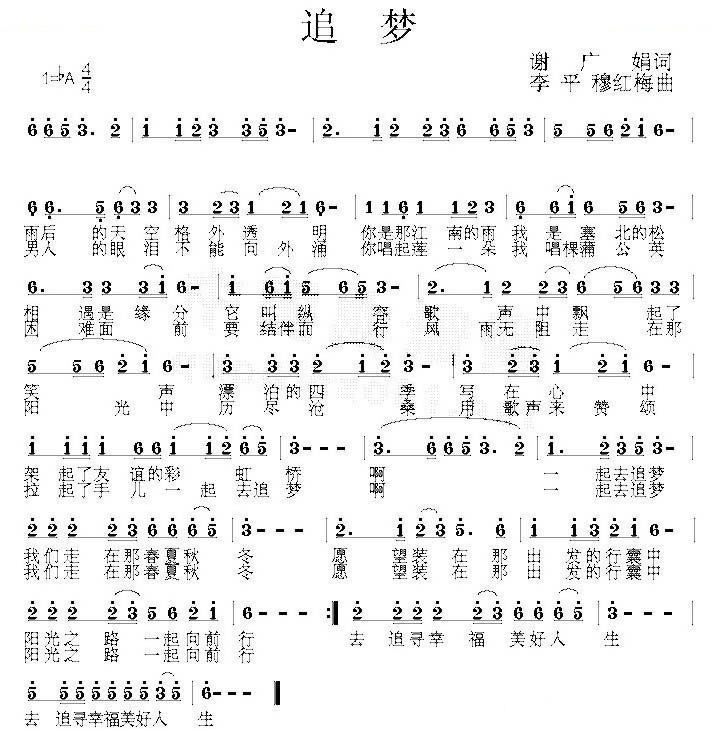 追 梦
1=♭A 4/4
谢 广 娟词
李 平 穆红梅曲
6 6 5 3. 2 | 1 1 2 3 3 5 3 - | 2. 1 2 2 3 6 6 5 3 | 5 5 6 2 1 6 - |
6 6. 5 6 3 3 | 3 2 3 1 2 1 - | 1 1 6 1 1 2 3 | 6 6 1 6 5 3 3 |
雨后 的天空格外透 明 你是那江 南的雨我是塞 北的松
男人 的眼泪不能向外涌 你唱起莲 一朵我唱棵蒲公英
6. 3 3 3 1 6 - | 1 6 1 5 6 5 3 - | 2. 3 5 2 3 5 | 5 6 5 3 3 |
相 遇是缘分 它叫纵 容 歌 声中飘 起了
困 难面 前 要结伴而 行 风 雨无阻走 在那
5 5 6 2 1 6 - | 3 3 3 2 2 - | 3 2 3 1 2 1 6 - |
笑 声 漂泊的四 季 写在心 中
阳 光中 历尽沧 桑 用歌声来赞颂
1 1 1 1 6 6 1 1 2 6 5 | 3 - - - | 3. 6 6 5 3. 2 | 1. 2 3 5 3 |
架起了友谊的彩 虹 桥 啊 一起去追梦
拉起了手儿一起去追 梦 啊 一起去追梦
2 2 2 2 3 6 6 6 5 | 3 - - - | 2. 1 2 3 5. 6 | 1 1 5 3 2 1 6 - |
我们走 在那春夏秋 冬 愿 望装在那 出发的行囊中
我们走 在那春夏秋 冬 愿 望装在那 出发的行囊中
2 2 2 2 3 5 6 2 1 | 6 - - :‖ 2 2 1 2 3 6 6 6 5 | 3 - - - |
阳光之 路 一起向前 行 去 追寻幸 福 美好人 生
阳光之 路 一起向前 行
5 5 5 5 5 5 3 5 | 6 - - ‖
去 追寻幸福美好人 生